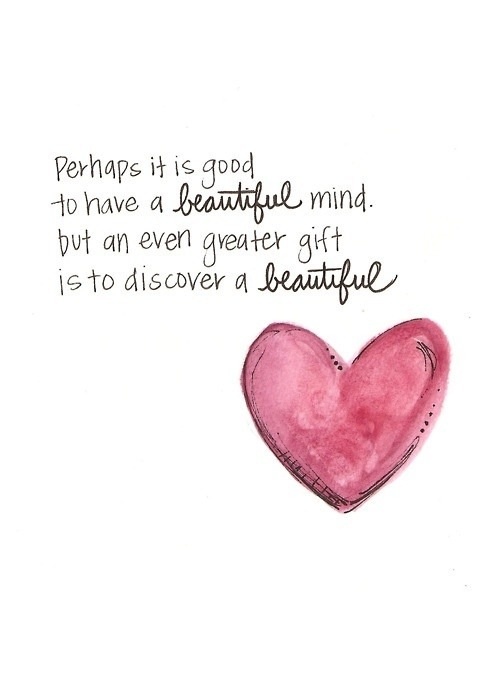 Perhaps it is good
to have a beautiful mind.
but an even greater gift
is to discover a beautiful